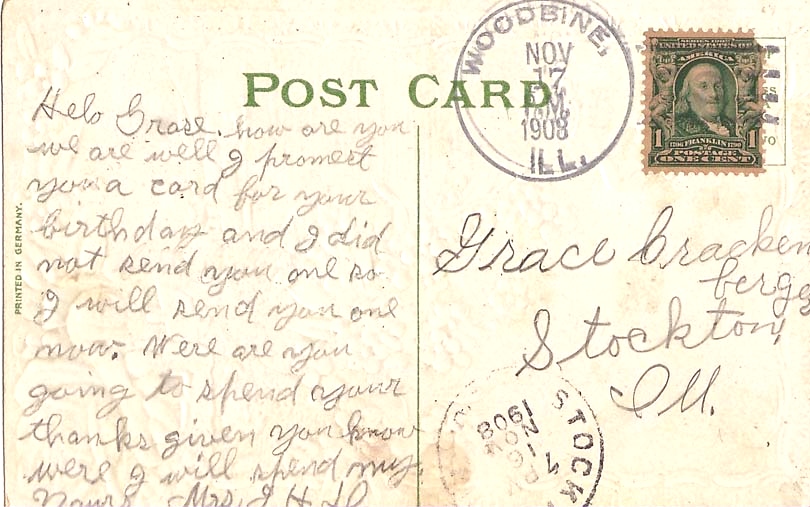 POST CARD
PRINTED IN GERMANY.
WOODBINE,
NOV
17
M.
1908
ILL.
SERIES 1902
UNITED STATES OF
AMERICA
1 1
1706 FRANKLIN 1790
POSTAGE
ONE CENT
Helo Grase. how are you
we are well I promest
you a card for your
birthday and I did
not send you one so
I will send you one
now. Were are you
going to spend your
thanks given you know
were I will spend my
Yours Mrs J H
Grace Cracken
berge
Stockton,
Ill.
STOCK
NOV
17
1908